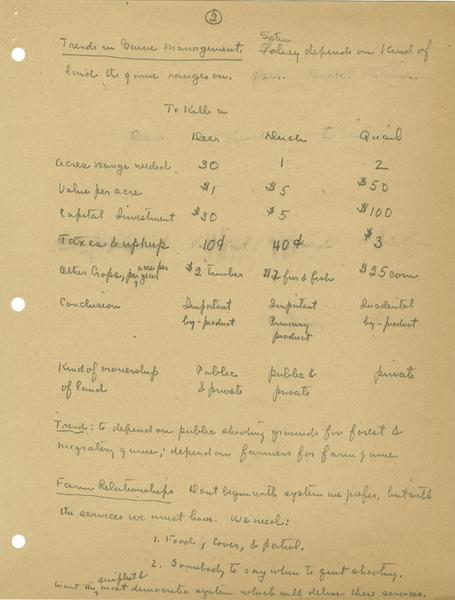 2
Trends in Game Management. System
Policy depends on Kind of
land the game ranges on.
To Kill a
Deer Duck Quail
Acres range needed 30 1 2
Value per acre $1 $5 $50
Capital Investment $30 $5 $100
Taxes & upkeep 10¢ 40¢ $3
Other Crops, per acre per year $2 timber $2 furs & fish $25 corn
Conclusion Important Important Incidental
by-product Primary by-product
product
Kind of ownership Public public & private
of land & private private
Trend: to depend on public shooting grounds for forest &
migratory game; depend on farmers for farm game.
Farm Relationships Dont begin with system we prefer, but with
the services we must have. We need:
1. Food, cover, & patrol.
2. Somebody to say when to quit shooting.
Want the simplest & most democratic system which will deliver these services.